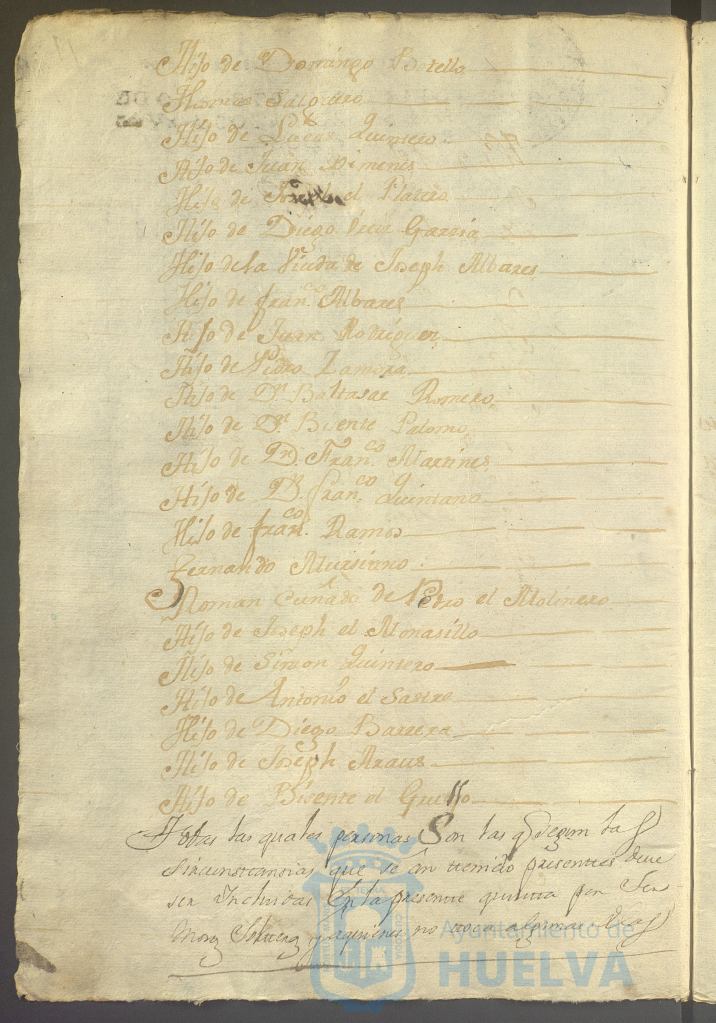 Hijo de Domingo Botello
Thomas Salguero
Hijo de Lucas Quintero
Hijo de Juan Ximenes
Hijo de Joseph el Platero
Hijo de Diego Garsia
Hijo de la Viuda de Joseph Albares
Hijo de fran.co Albares
Hijo de Juan Rodriguez
Hijo de Pedro Zamora
Hijo de Dn. Baltasar Romero
Hijo de Dn. Bisente Palomo
Hijo de Dn. Fran.co Martines
Hijo de Dn. fran.co Quintano
Hijo de fran.co Ramos
Fernando Mursiano
Roman Cuñado de Pedro el Molinero
Hijo de Joseph el Monasillo
Hijo de Simon Quintero
Hijo de Antonio el Sastre
Hijo de Diego Barrera
Hijo de Joseph Araus
Hijo de Bisente el Guello
Todas las quales personas Son las q segun las
Sircunstansias que se an tenido presentes deve
ser Incluidas En la presente quinta por Ser
Mozos Solteros y aquienes no
Ayuntamiento de
HUELVA